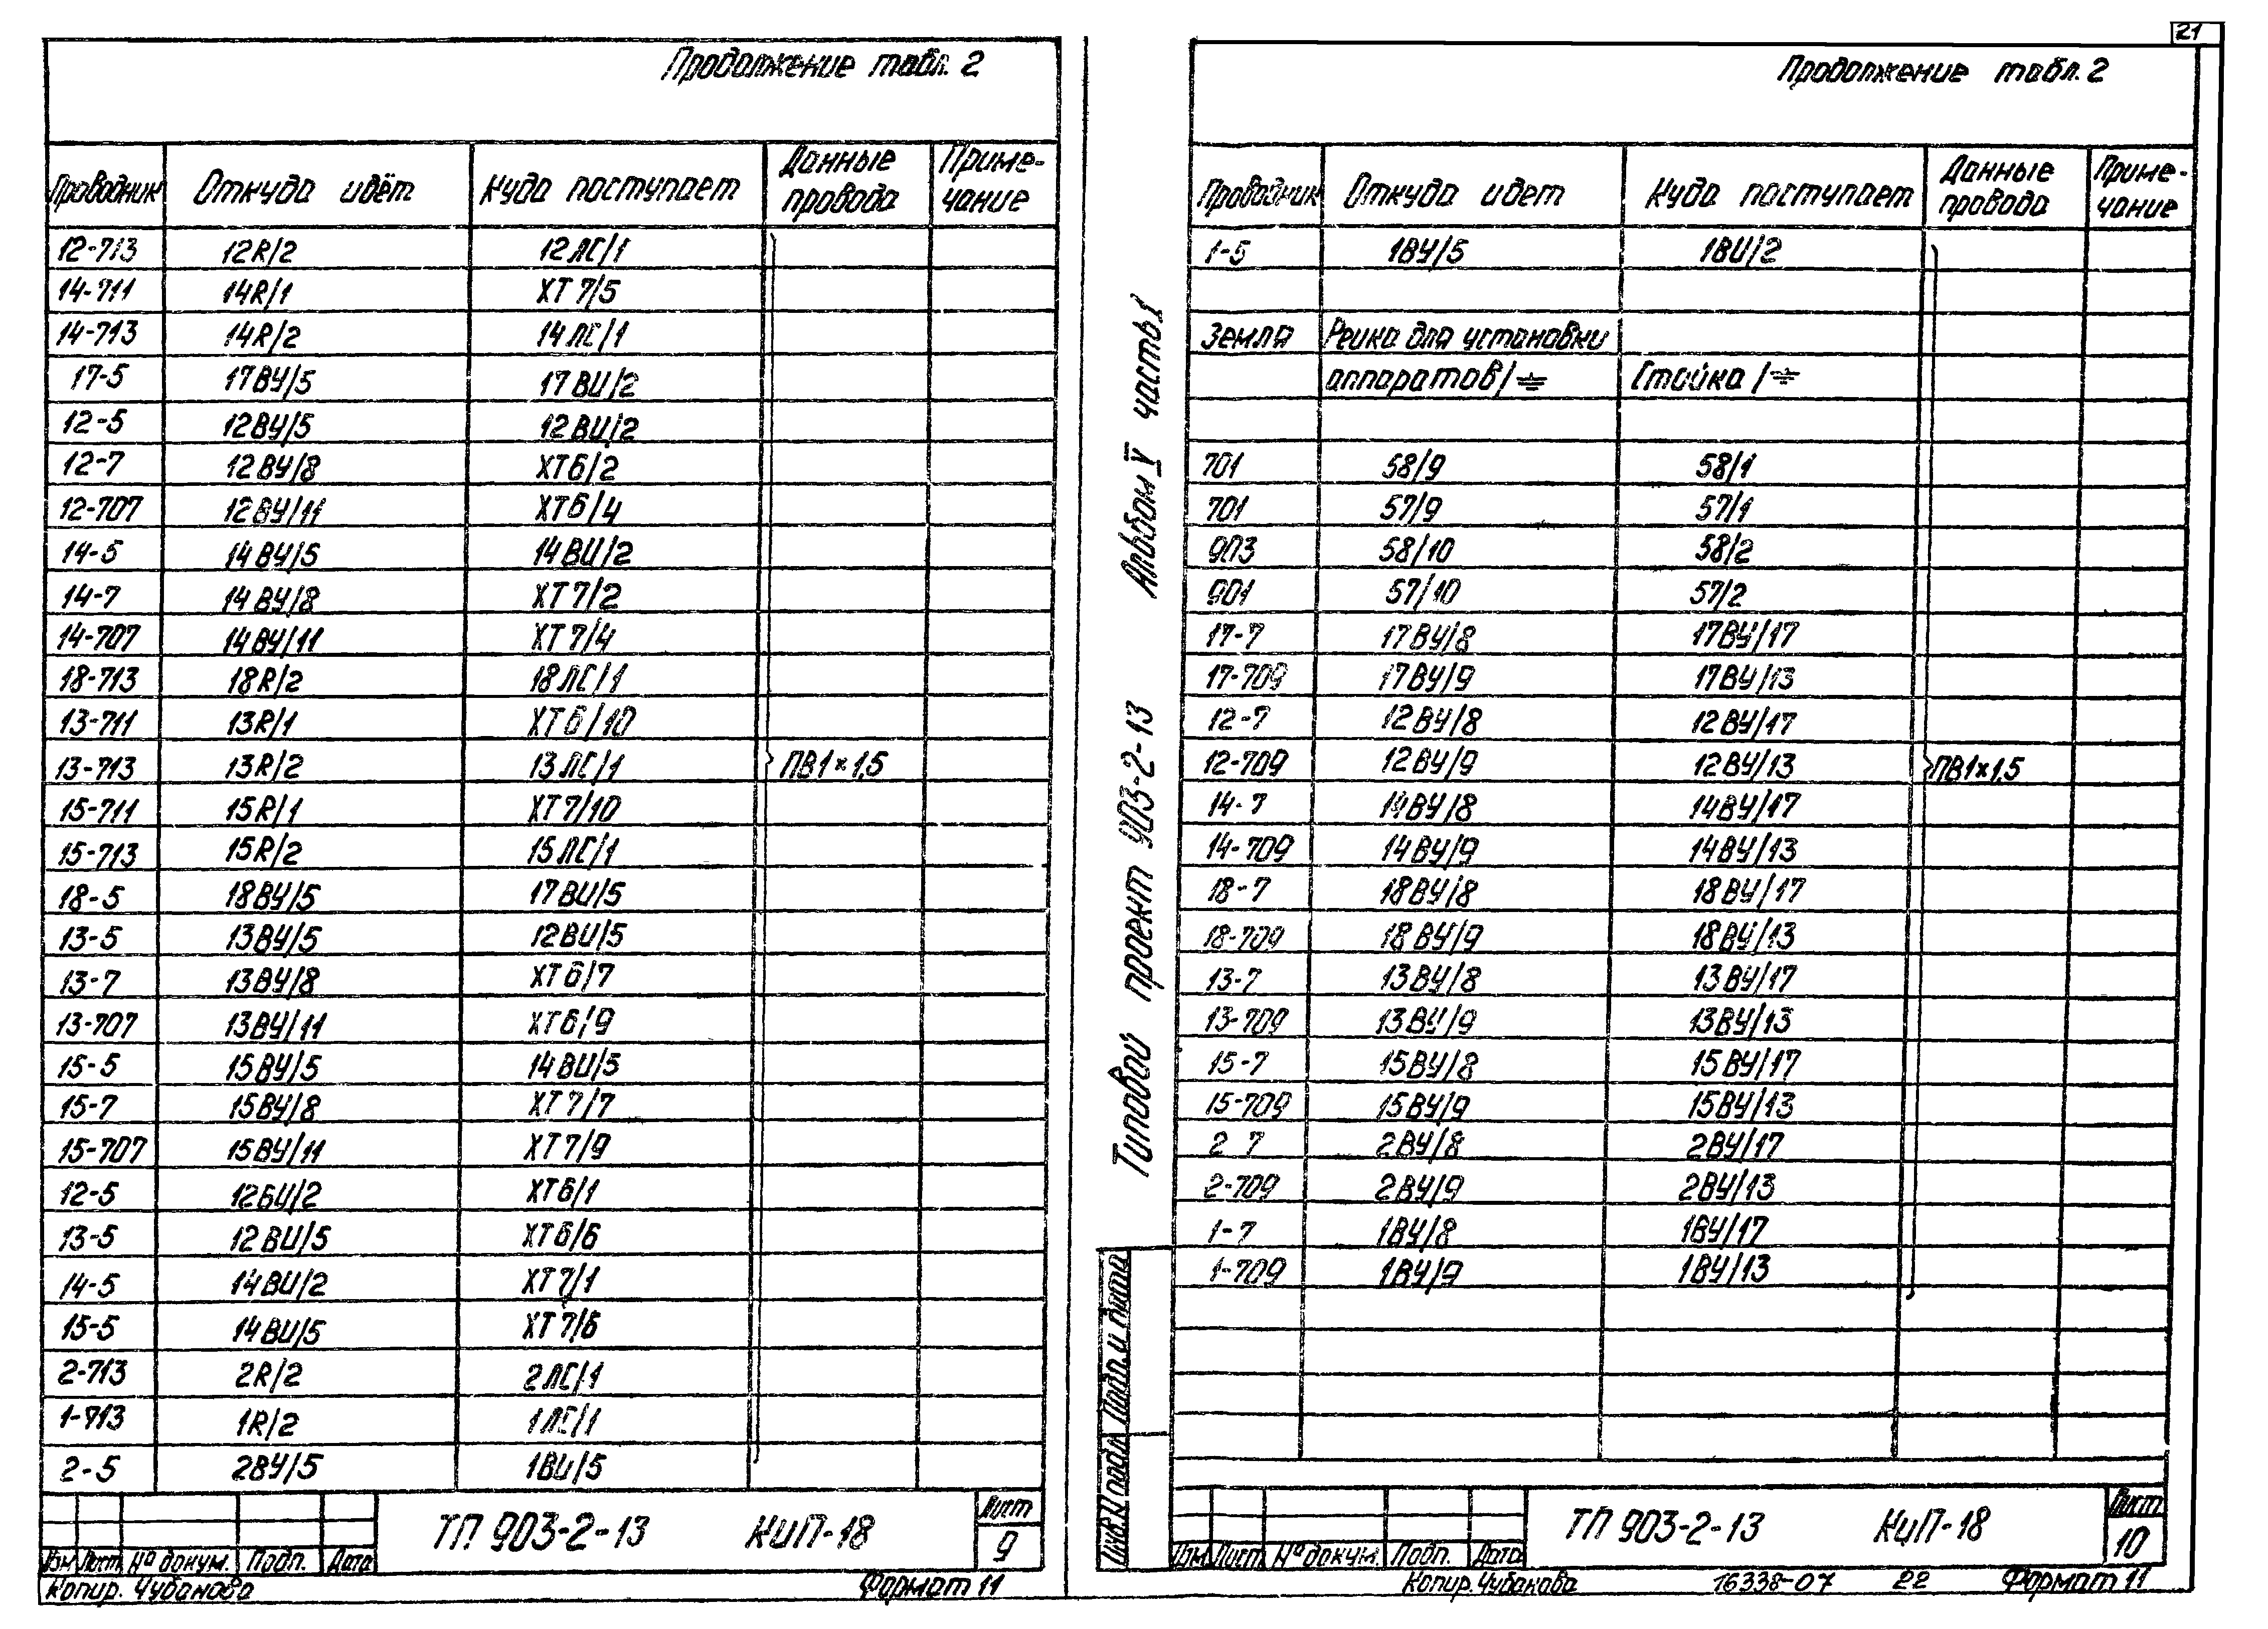 Продолжение табл. 2
Проводник Откуда идёт Куда поступает Данные провода Примечание
12-713 12R/2 12ЛС/1
14-711 14R/1 ХТ7/5
14-713 14R/2 14ЛС/1
17-5 17ВУ/5 17ВИ/2
12-5 12ВУ/5 12ВИ/2
12-7 12ВУ/8 ХТ6/2
12-707 12ВУ/11 ХТ6/4
14-5 14ВУ/5 14ВИ/2
14-7 14ВУ/8 ХТ7/2
14-707 14ВУ/11 ХТ7/4
18-713 18R/2 18ЛС/1
13-711 13R/1 ХТ6/10
13-713 13R/2 13ЛС/1 ПВ1×1,5
15-711 15R/1 ХТ7/10
15-713 15R/2 15ЛС/1
18-5 18ВУ/5 17ВИ/5
13-5 13ВУ/5 12ВИ/5
13-7 13ВУ/8 ХТ6/7
13-707 13ВУ/11 ХТ6/9
15-5 15ВУ/5 14ВИ/5
15-7 15ВУ/8 ХТ7/7
15-707 15ВУ/11 ХТ7/9
12-5 12БИ/2 ХТ6/1
13-5 12ВИ/5 ХТ6/6
14-5 14ВИ/2 ХТ7/1
15-5 14ВИ/5 ХТ7/6
2-713 2R/2 2ЛС/1
1-713 1R/2 1ЛС/1
2-5 2ВУ/5 1ВИ/5
ТП 903-2-13 КиП-18 Лист 9
Изм Лист № докум. Подп. Дата
Копир. Чубанова Формат 11
21
Продолжение табл. 2
Проводник Откуда идет Куда поступает Данные провода Примечание
1-5 1ВУ/5 1ВИ/2
Земля Рейка для установки
аппаратов/⏚ Стойка/⏚
701 58/9 58/1
701 57/9 57/1
903 58/10 58/2
901 57/10 57/2
17-7 17ВУ/8 17ВУ/17
17-709 17ВУ/9 17ВУ/13
12-7 12ВУ/8 12ВУ/17
12-709 12ВУ/9 12ВУ/13 ПВ1×1,5
14-7 14ВУ/8 14ВУ/17
14-709 14ВУ/9 14ВУ/13
18-7 18ВУ/8 18ВУ/17
18-709 18ВУ/9 18ВУ/13
13-7 13ВУ/8 13ВУ/17
13-709 13ВУ/9 13ВУ/13
15-7 15ВУ/8 15ВУ/17
15-709 15ВУ/9 15ВУ/13
2 7 2ВУ/8 2ВУ/17
2-709 2ВУ/9 2ВУ/13
1-7 1ВУ/8 1ВУ/17
1-709 1ВУ/9 1ВУ/13
Типовой проект 903-2-13 Альбом V часть 1
Инв.N подл. Подп. и дата
ТП 903-2-13 КиП-18 Лист 10
Изм Лист № докум. Подп. Дата
Копир. Чубанова 16338-07 22 Формат 11